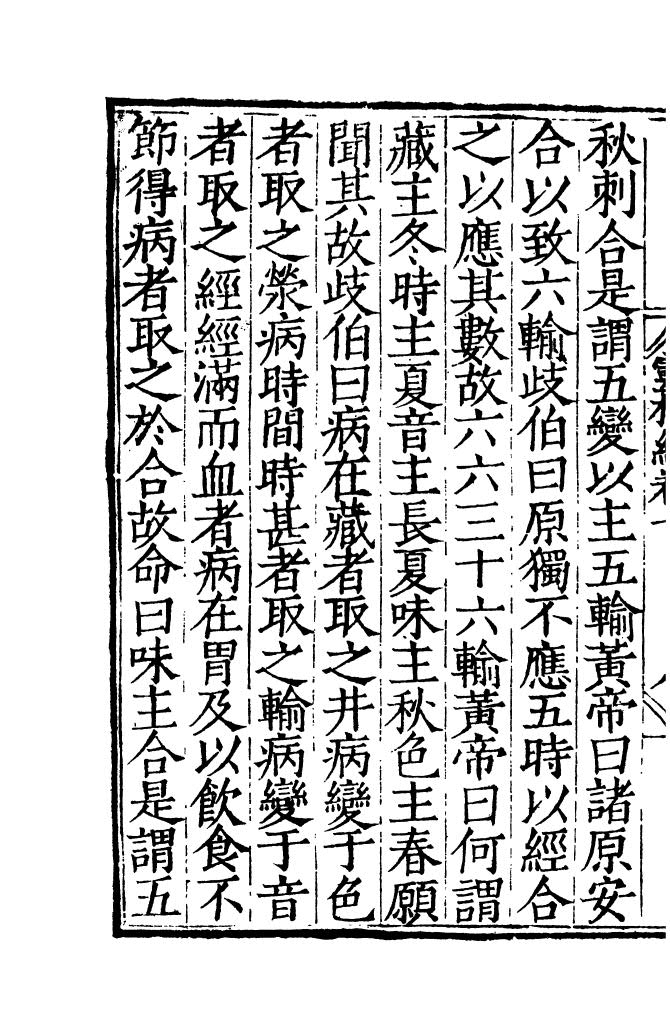 秋刺合是謂五變以主五輸黃帝曰諸原安
合以致六輸歧伯曰原獨不應五時以經合
之以應其數故六六三十六輸黃帝曰何謂
藏主冬時主夏音主長夏味主秋色主春願
聞其故歧伯曰病在藏者取之井病變于色
者取之滎病時間時甚者取之輸病變于音
者取之經經滿而血者病在胃及以飲食不
節得病者取之於合故命曰味主合是謂五